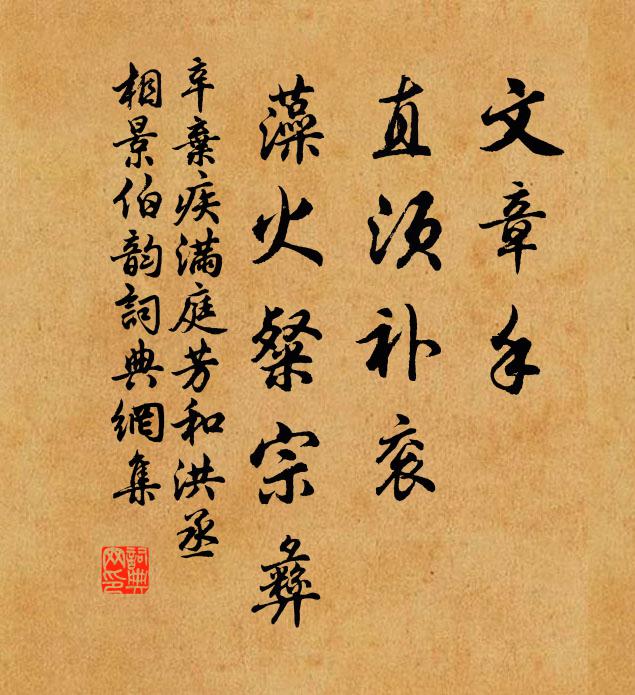 文章手
直须补衮
藻火粲宗彝
辛棄疾满庭芳和洪丞
相景伯韵詞典網集
詞典網印